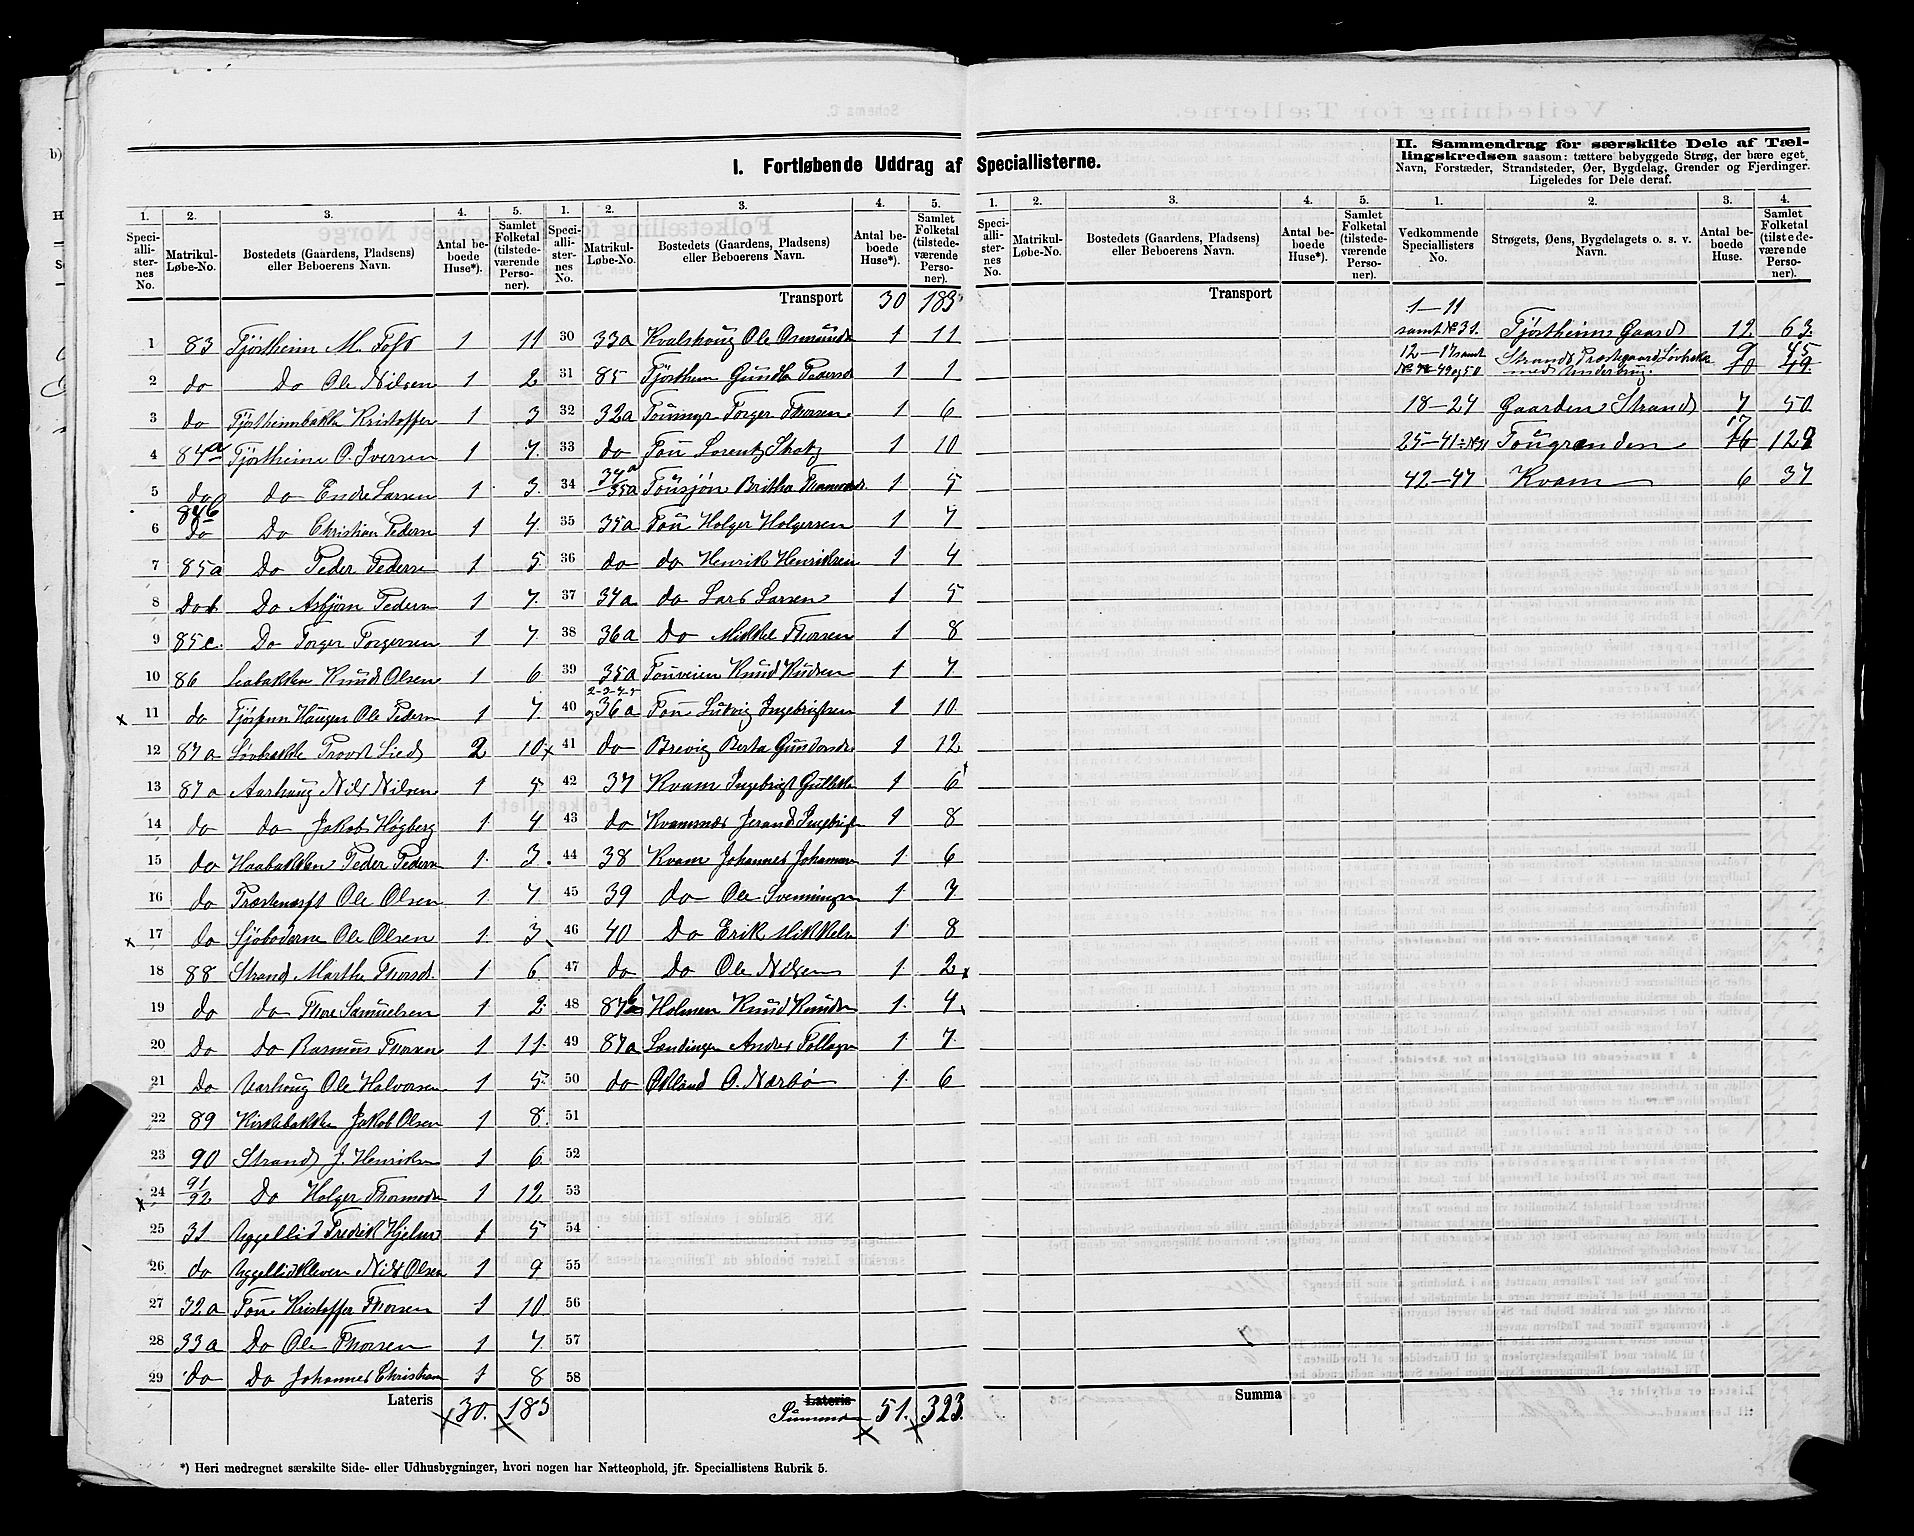 I. Fortløbende Uddrag af Speciallisterne.
II. Sammendrag for særskilte Dele af Tællingskredsen saasom: tættere bebyggede Strøg, der bære eget
Navn, Forstæder, Strandsteder, Øer, Bygdelag, Grender og Fjerdinger.
Ligeledes for Dele deraf.
1. 2. 3. 4. 5. 1. 2. 3. 4. 5. 1. 2. 3. 4. 5. 1. 2. 3. 4.
Speciallisternes No. Matrikul-Løbe-No. Bostedets (Gaardens, Pladsens) eller Beboerens Navn. Antal beboede Huse*). Samlet Folketal (tilstedeværende Personer).
Speciallisternes No. Matrikul-Løbe-No. Bostedets (Gaardens, Pladsens) eller Beboerens Navn. Antal beboede Huse*). Samlet Folketal (tilstedeværende Personer).
Speciallisternes No. Matrikul-Løbe-No. Bostedets (Gaardens, Pladsens) eller Beboerens Navn. Antal beboede Huse*). Samlet Folketal (tilstedeværende Personer).
Vedkommende Speciallisters No. Strøgets, Øens, Bygdelagets o. s. v. Navn. Antal beboede Huse. Samlet Folketal (tilstedeværende Personer).
1 83 Tjøstheim M. Toft 1 11
2 do Do Ole Nilsen 1 2
3 do Tjøstheimbakke Kristoffer 1 3
4 84a Tjøstheim O. Iversen 1 7.
5 do do Endre Larsen 1 3.
6 84b do Do Christian Pedersn 1 4.
7 85a Do Peder Pedersn 1 5
8 Do b Do Asbjørn Pedersn 1 7.
9 85c. Do Torger Torgersen 1 7.
10 86 Liabakken Knud Olsen 1 6
x 11 do Haugen Ole Pedersn 1 7.
12 87a Løvbakke Provst Lied 2 10
13 87a Aarhaug Nils Nilsen 1 5
14 do do Jakob Høgberg 1 4
15 do Haabakken Peder Pedersn 1. 3.
16 do Ole Olsen 1 7
x 17 do Sjøboderne Ole Olsen 1. 3
18 88 Strand Marthe Thorsd. 1 6
19 do do Thore Samuelsen 1 2
20 Do Do Rasmus Thorsen 1 11.
21 Do Aarhaug Ole Halvorsen 1 5
22 89 Kirkebakke Jakob Olsen 1 8.
23 90 Strand J. Henriksn 1 6
x 24 91/92 Do Holger Thormodsn 1 12
25 31 Uggellid Fredrik Hjelm 1 5
26 do Uggellidkleven Nils Olsen 1 9
27 32a Tou Kristoffer Thorsen 1 10
28 33a Do Ole Thorsen 1 7
29 do Do Johannes Christian 1 8
Lateris 30. 183
Transport 30 183
30 33a Kvalshaug Ole Osmunds 1 11
31 85 Tjøstheim Gundla Pedersd 1 1
32 32a Toumyr Torger Thorsen 1 6
33 do Tou Lorentz Skatz 1 10
34 34a/35a Tousjøn Britha 1 5
35 35a Tou Holger Holgersen 1 7
36 do do Henrik Henriksen 1 4
37 34a do Lars Larsen 1 5
38 36a Do Mikkel Thorsen 1 8
39 35a Touveien Knud Knudsen 1 7.
40 36a Tou Ludvig Ingebrigtsen 1 10
41 do Brevig Berta Gundersd. 1 12
42 37 Kvam Ingebrigt 1 6
43 do Kvamsnæs Jerand Ingebrigt 1 8
44 38 Kvam Johannes Johannes 1 6
45 39 do Ole Svenningsn 1 7
46 40 Do Erik Mikkels 1. 8
47 do Do Ole Nilsen 1. 2
48 87 Holmen Knud Knudsn 1. 4
49 87a Lendingen Andres 1. 7.
50 do O. Nærbø 1. 6
51
52
53
54
55
56
57
58
Lateris
Summa 51. 323.
Transport
Summa
1—11
samt No 31. Tjøstheims Gaard 12. 63.
12—17 samt Strands Præstegaard Løvbakke 9 45
No 48-49 og 50 med Underbrug. 10 49.
18—24 Gaarden Strand 7 50
25—41 Tougrenden 17 16 128
42—47 Kvam 6 37
*) Heri medregnet særskilte Side- eller Udhusbygninger, hvori nogen har Natteophold, jfr. Speciallistens Rubrik 5.